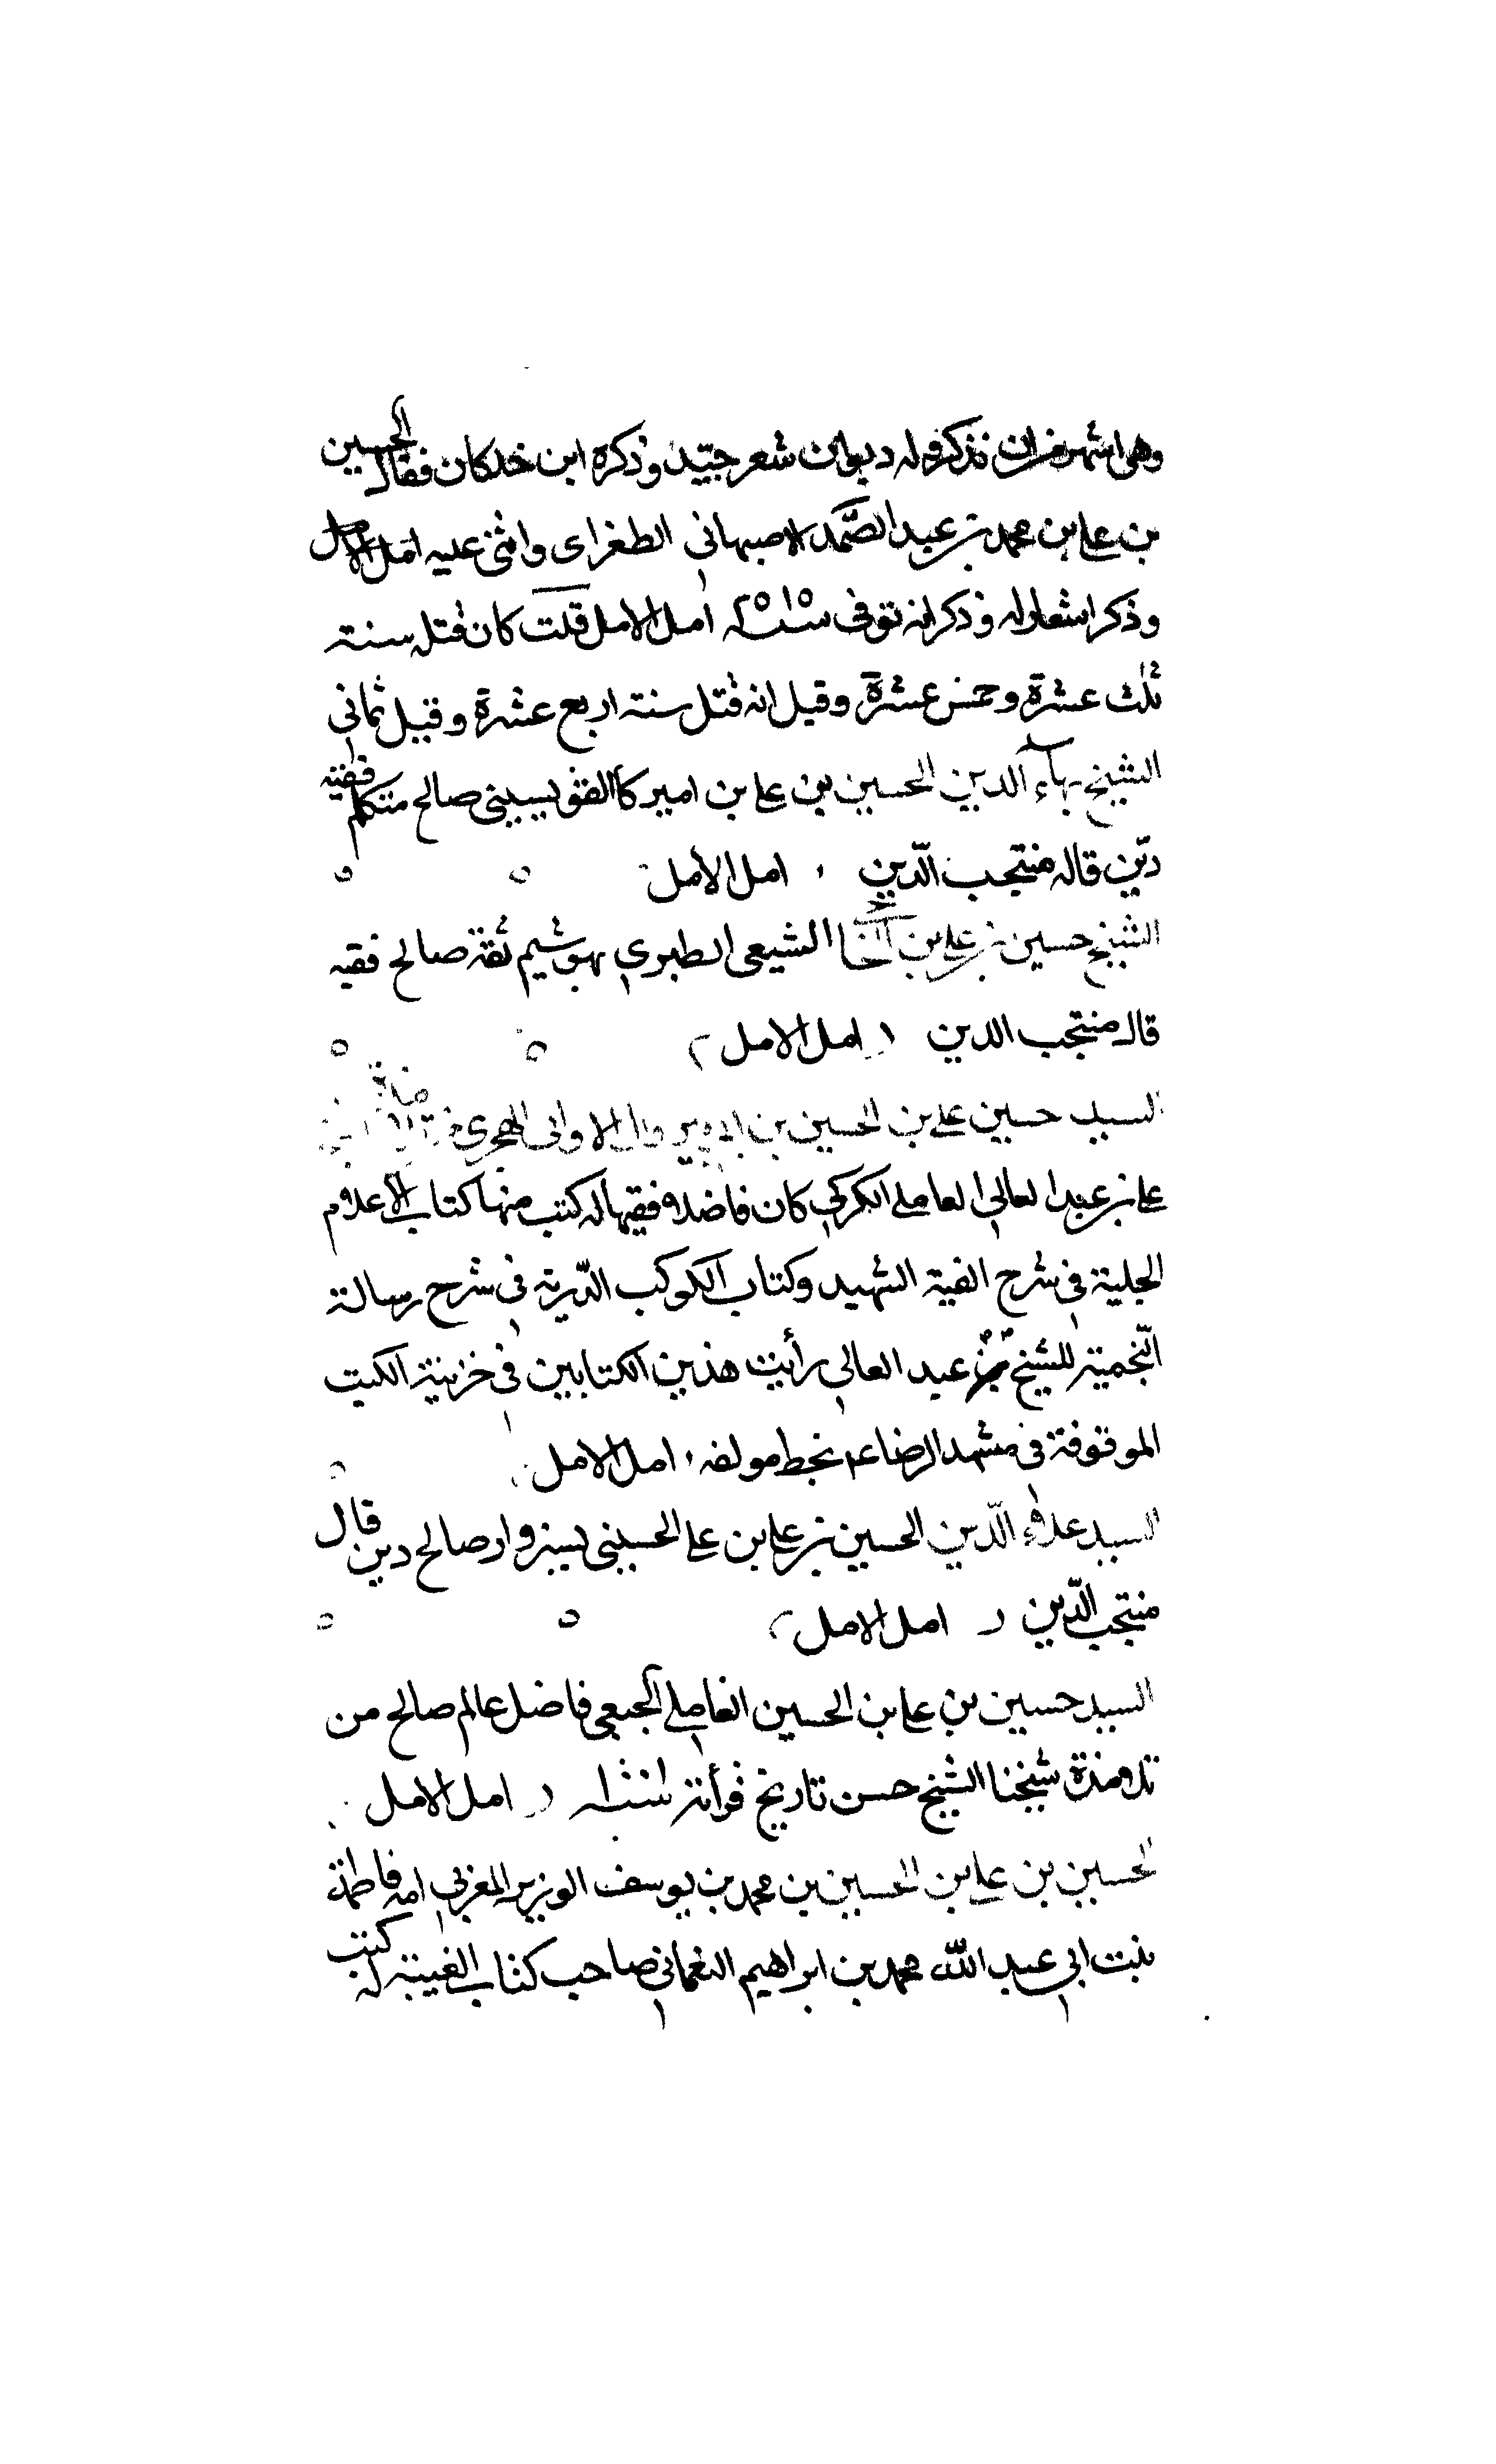 وهی اشهر من ان تذكر وله ديوان شعر جيّد وذكره ابن خلكان فقال الحسين
بن علی بن محمد بن عبد الصّمد الاصبهانی الطغرای واثنی علیه امل الامل
وذكر اشعارا له وذكر انه توفی امل الامل قلت كان قتله سنة
ثلث عشرة وخمس عشرة وقيل انه قتل سنة اربع عشرة وقيل ثمانی
الشيخ بهاء الدين الحسين بن علی بن اميركا القوسينی صالح متكلم فقيه
ديّن قاله منتجب الدّين امل الامل
الشيخ حسين بن علی بن الشيعی الطبری بهوشيم ثقة صالح فقيه
قاله منتجب الدين امل الامل
السيد حسين علی بن الحسين بن الاوالی الهجری
علی بن عبد العالی العاملی الكركی كان فاضلا فقيها له كتب منها كتاب الاعلام
الجلية فی شرح الفية الشهيد وكتاب الكوكب الدّرية فی شرح رسالة
النّجمية للشيخ عبد العالی رأيت هذين الكتابين فی خزينة الكتب
الموقوفة فی مشهد الرضا ع بخط مولفه امل الامل
السيد علاء الدّين الحسين بن علی بن علی الحسينی بسبزوار صالح دين قال
منتجب الدّين امل الامل
السيد حسين بن علی بن الحسين العاملی الجبعی فاضل عالم صالح من
تلامذة شيخنا الشيخ حسن تاريخ قرأته امل الامل
الحسين بن علی بن الحسين بن محمد بن يوسف الوزير المغربی امه فاطمة
بنت ابی عبد الله محمد بن ابراهيم النعمانی صاحب كتاب الغيبة له كتب